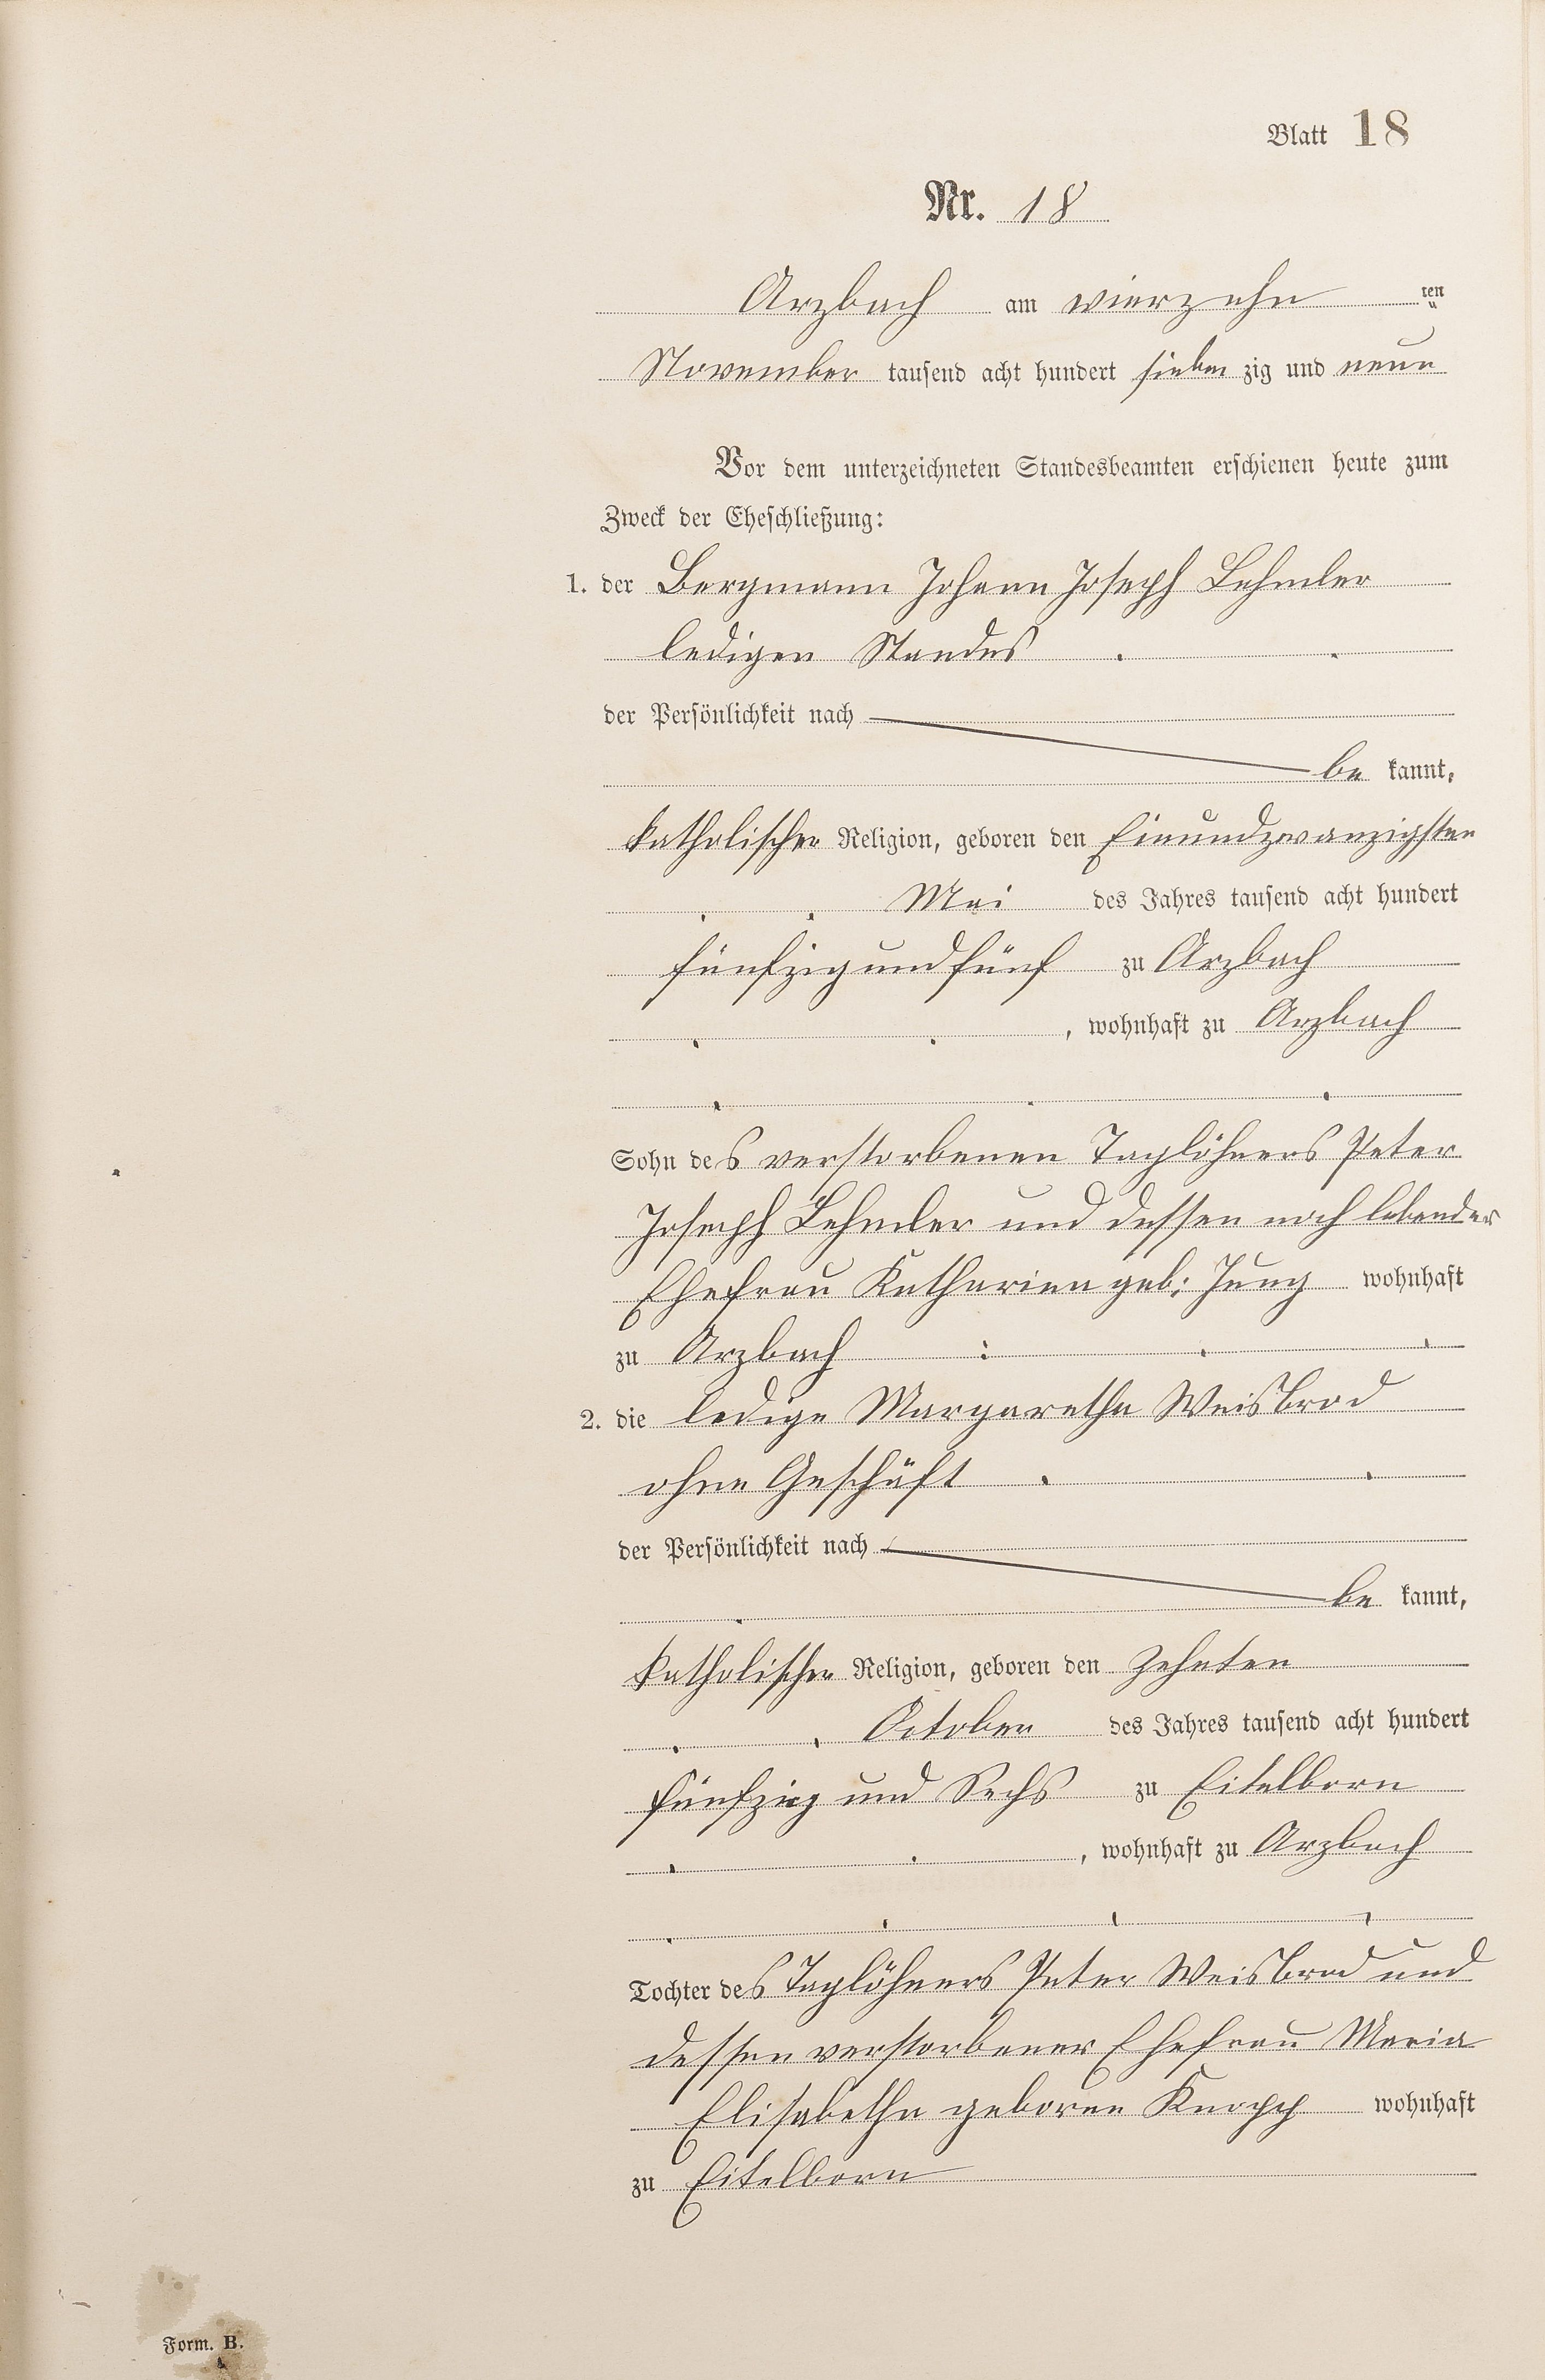 Blatt 18
Nr. 18
Arzbach am vierzehn ten
November tausend acht hundert sieben zig und neun
Vor dem unterzeichneten Standesbeamten erschienen heute zum
Zweck der Eheschließung:
1. der Bergmann Johann Joseph Lehmler
ledigen Standes
der Persönlichkeit nach
be kannt,
katholischer Religion, geboren den Einundzwanzigsten
Mai des Jahres tausend acht hundert
fünfzig und fünf zu Arzbach
, wohnhaft zu Arzbach
Sohn des verstorbenen Taglöhners Peter
Joseph Lehmler und dessen noch lebender
Ehefrau Katharina geb: Jung wohnhaft
zu Arzbach
2. die ledige Margaretha Weisbrod
ohne Geschäft
der Persönlichkeit nach
be kannt,
katholischer Religion, geboren den zehnten
October des Jahres tausend acht hundert
fünfzig und Sechs zu Eitelborn
, wohnhaft zu Arzbach
Tochter des Taglöhners Peter Weisbrod und
dessen verstorbener Ehefrau Maria
Elisabetha geborne Knopp wohnhaft
zu Eitelborn
Form. B.